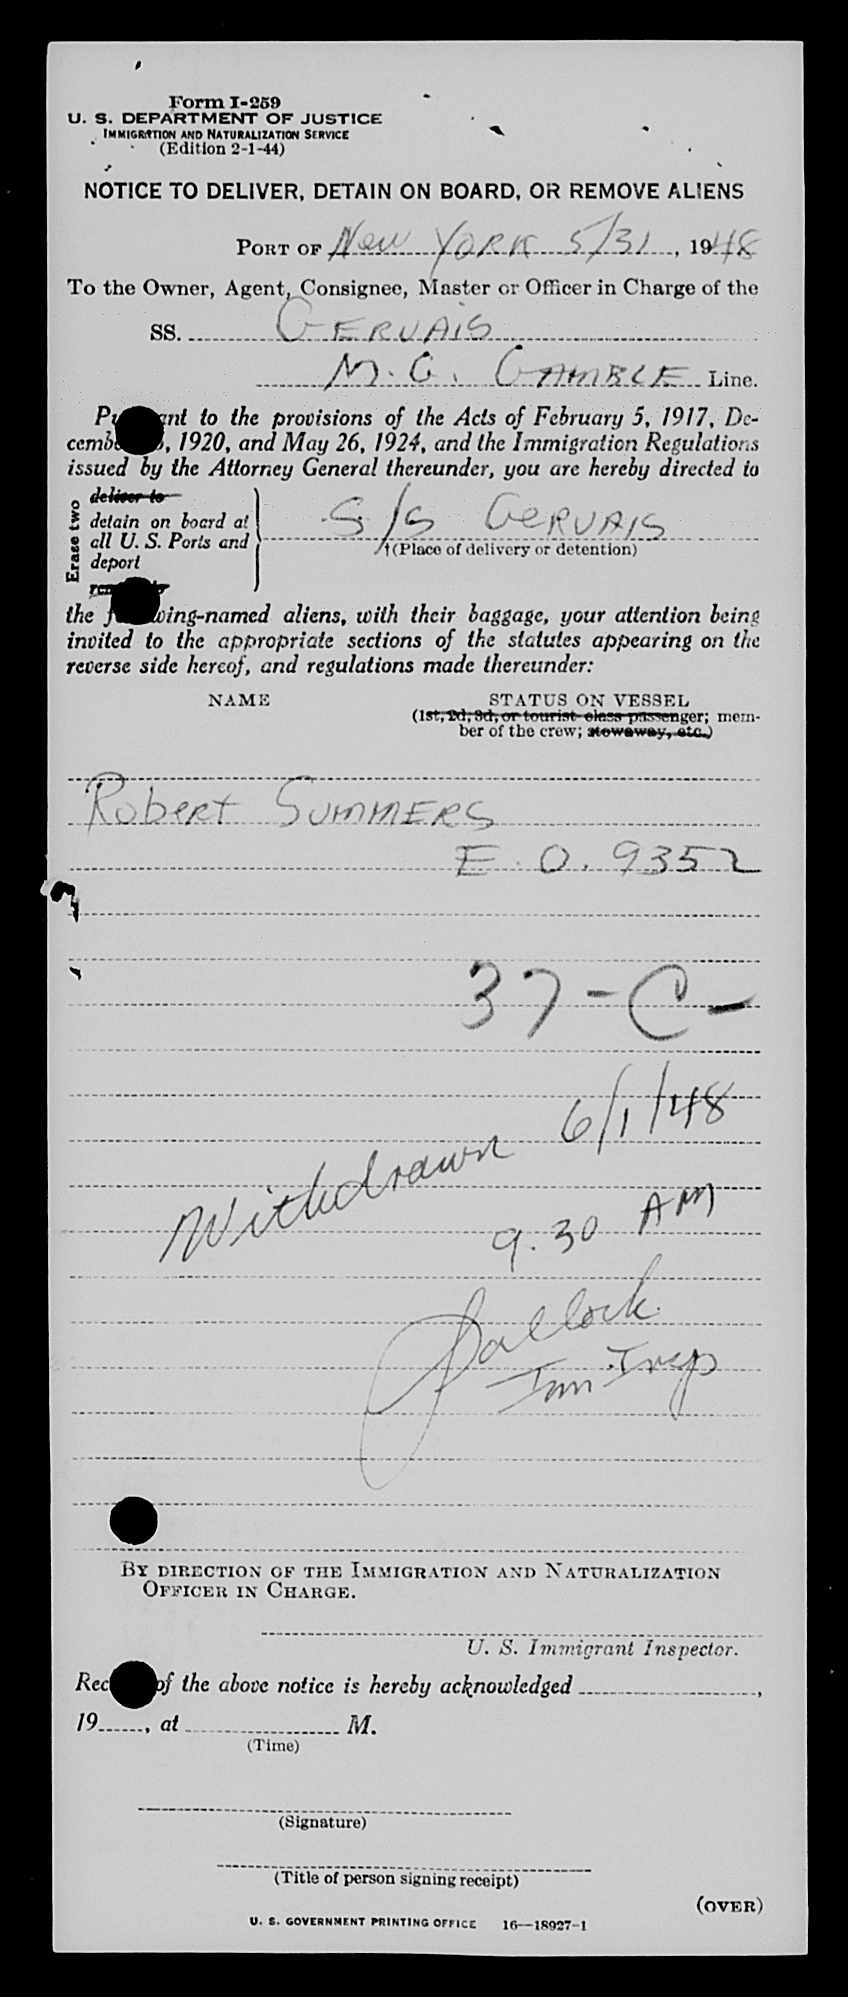 Form I-259
U. S. DEPARTMENT OF JUSTICE
IMMIGRATION AND NATURALIZATION SERVICE
(Edition 2-1-44)
NOTICE TO DELIVER, DETAIN ON BOARD, OR REMOVE ALIENS
PORT OF New York 5/31, 1948
To the Owner, Agent, Consignee, Master or Officer in Charge of the
SS. GERVAIS
M. G. GAMBLE Line.
Pu ant to the provisions of the Acts of February 5, 1917, De-
cemb , 1920, and May 26, 1924, and the Immigration Regulations
issued by the Attorney General thereunder, you are hereby directed to
Erase two
deliver to
detain on board at
all U. S. Ports and
deport
S/S GERVAIS
†(Place of delivery or detention)
the f wing-named aliens, with their baggage, your attention being
invited to the appropriate sections of the statutes appearing on the
reverse side hereof, and regulations made thereunder:
NAME STATUS ON VESSEL
(1st, 2d, 3d, or tourist class passenger; mem-
ber of the crew; stowaway, etc.)
Robert SUMMERS
E. O. 9352
37-C-
Withdrawn 6/1/48
9.30 AM
Imm. Insp
BY DIRECTION OF THE IMMIGRATION AND NATURALIZATION
OFFICER IN CHARGE.
U. S. Immigrant Inspector.
Rec of the above notice is hereby acknowledged ,
19 , at M.
(Time)
(Signature)
(Title of person signing receipt)
(OVER)
U. S. GOVERNMENT PRINTING OFFICE 16—18927-1